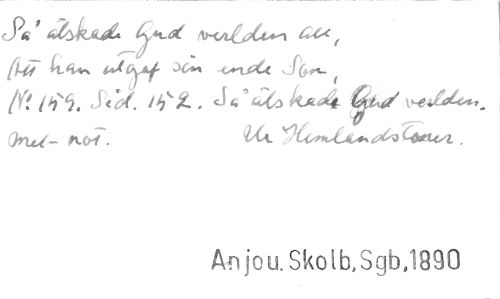 Så älskade Gud verlden all,
Att han utgaf sin ende Son,
No. 159. Sid. 152. Så älskade Gud verlden.
Mel- not. Ur Hemlandstoner.
Anjou. Skolb, Sgb, 1890